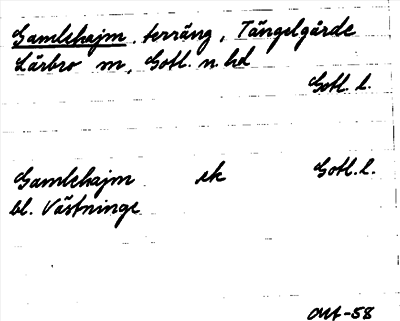 Gamlehajm, terräng, Tängelgårde
Lärbro sn, Gotl. n. hd
Gotl. l.
Gamlehajm ek Gotl. l.
bl. Västninge